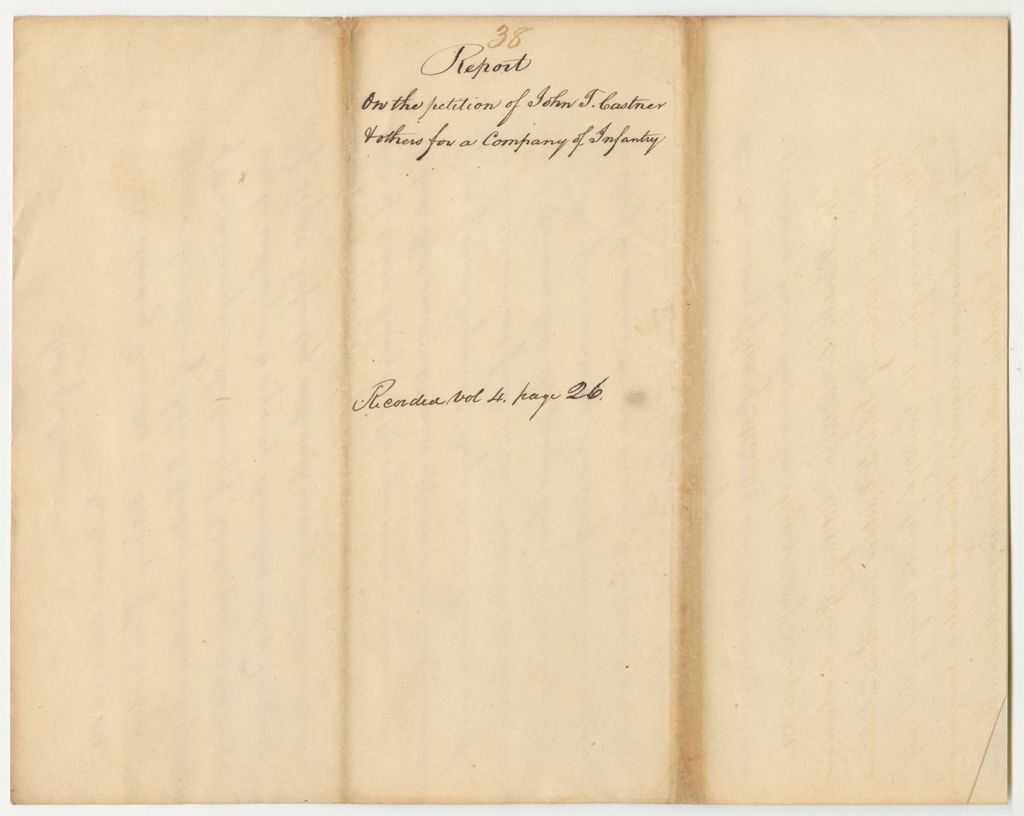 38
Report
On the petition of John T. Castner
& others for a Company of Infantry
Recorded Vol 4. page 26.